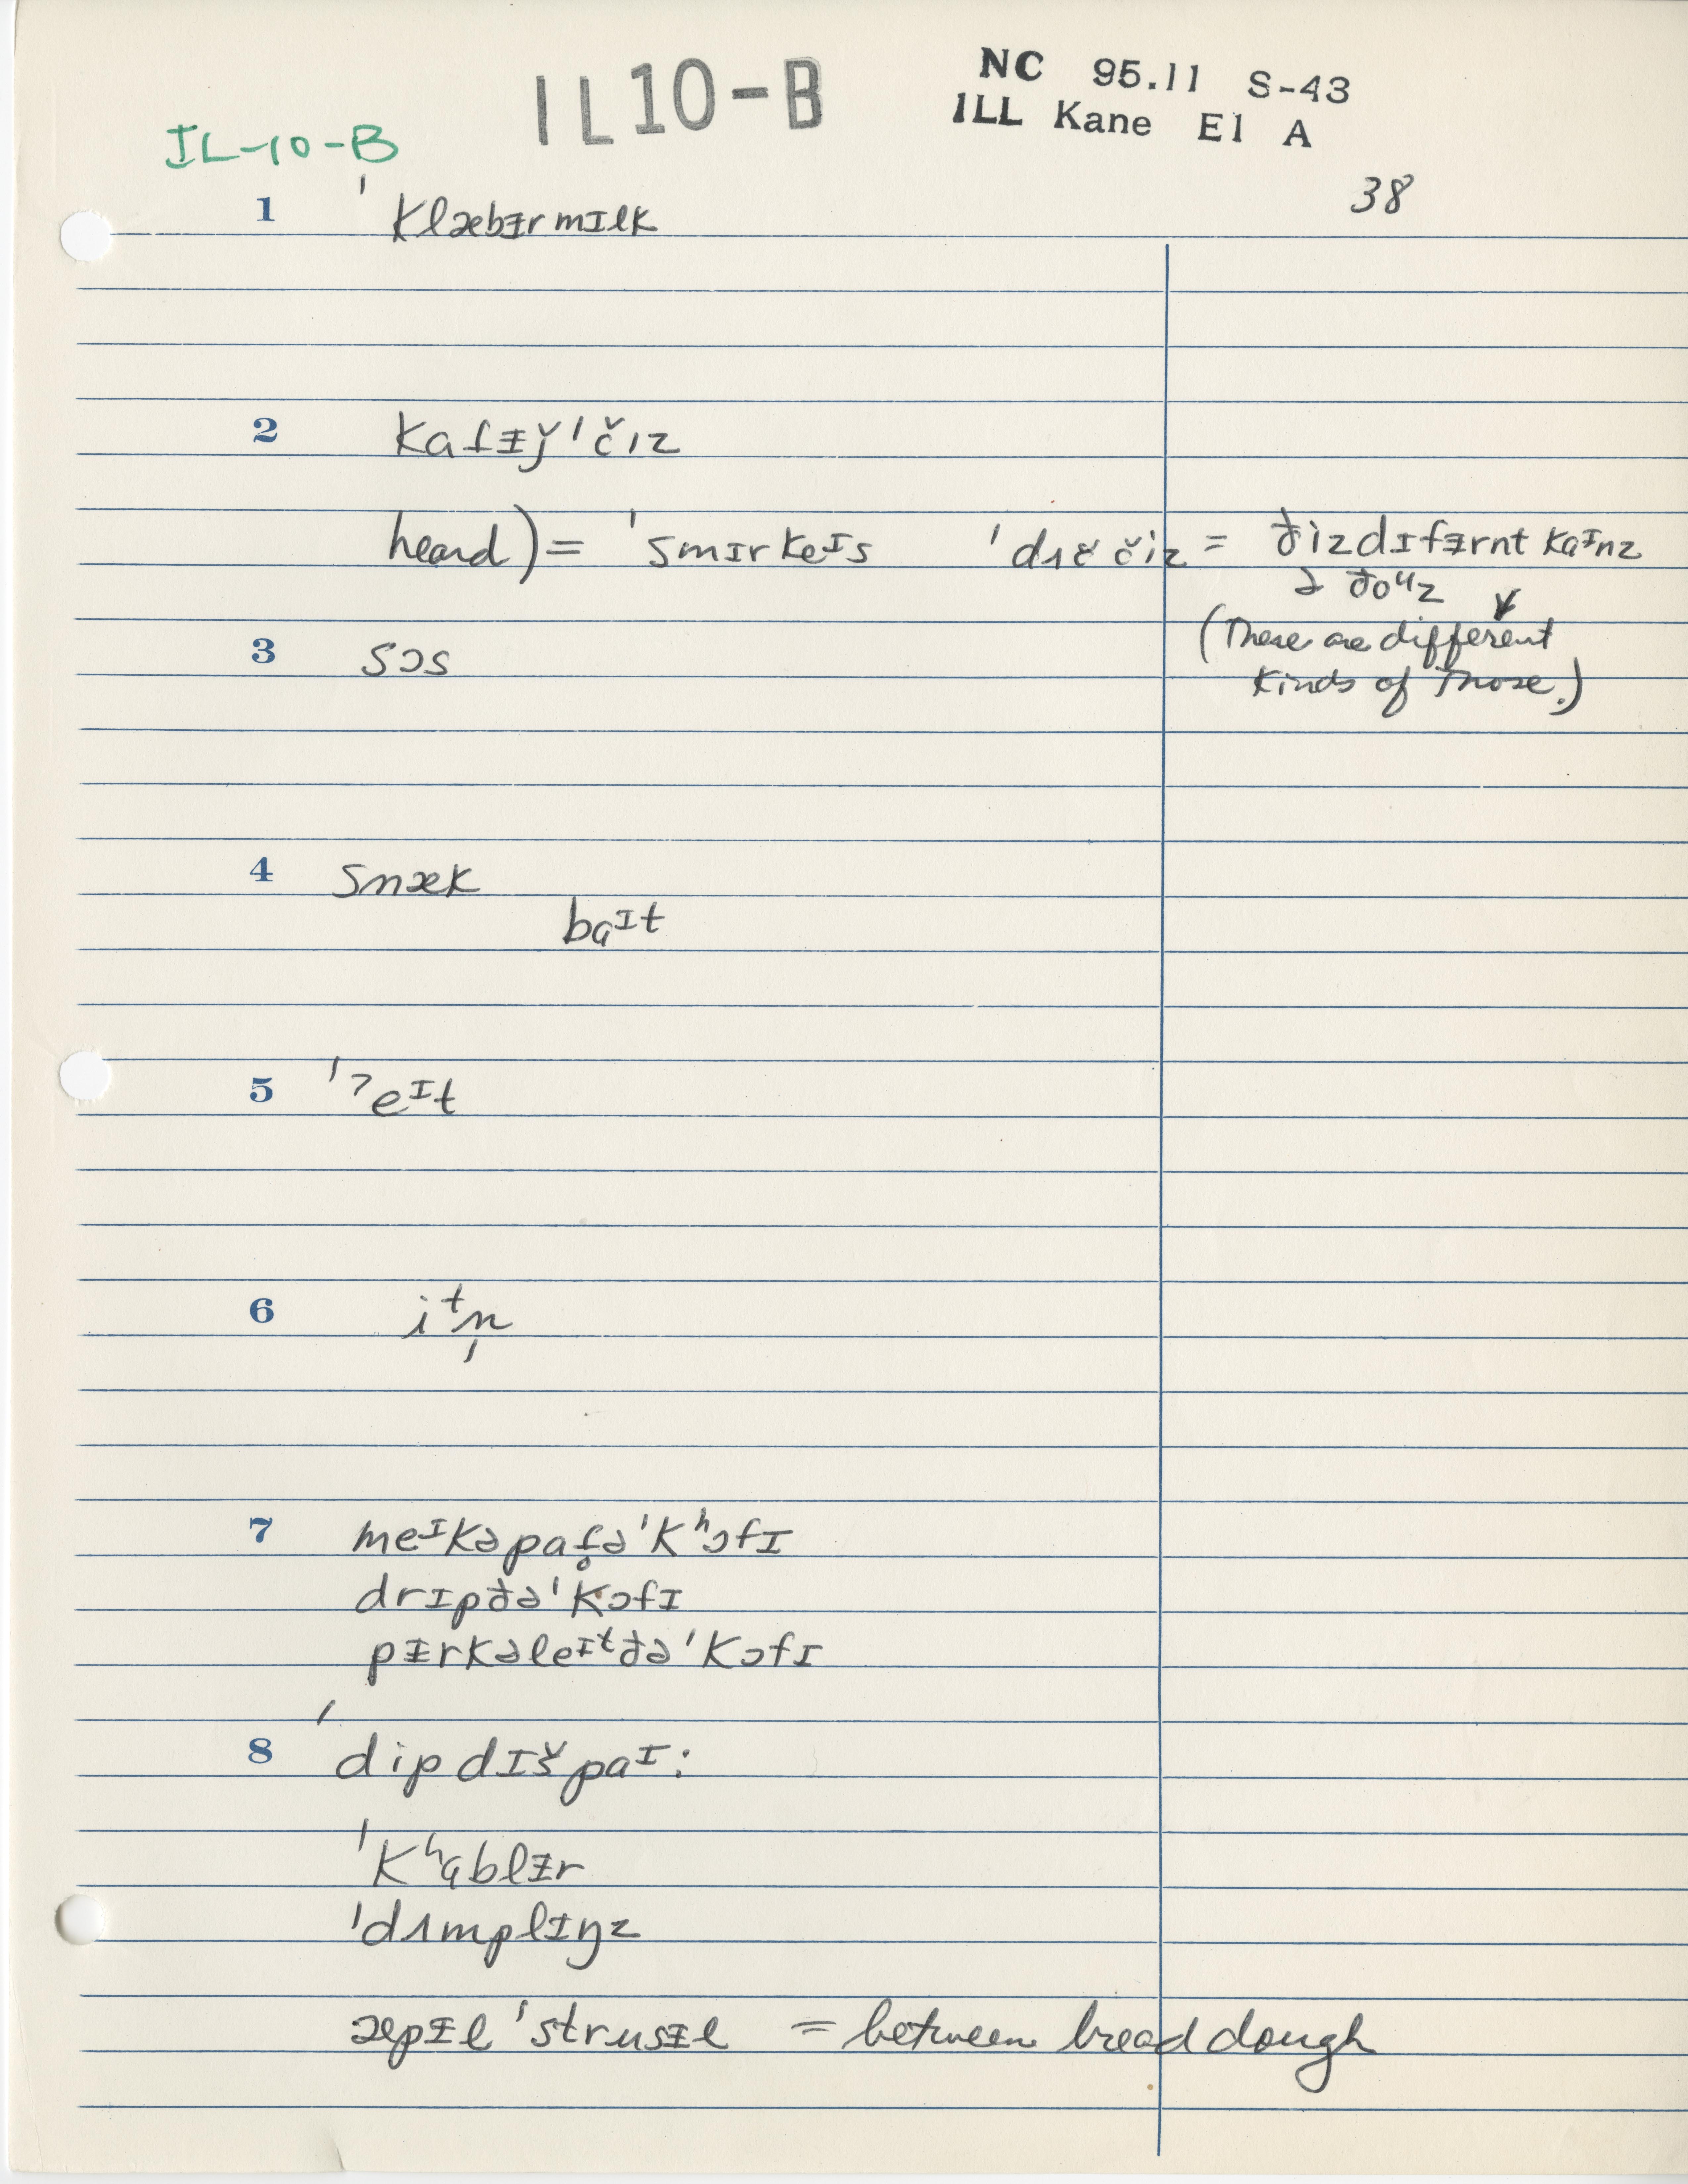 IL10-B
NC 95.11 S-43
ILL Kane El A
IL-10-B
38
1 ˈklæbᵻrmɪlk
2 kɑt̬ᵻǰˈčiz
heard)= ˈsmɪrkeɪs ˈdʌč čiz = ðizdɪfᵻrnt kaɪnz
ə ðoᵘz
(There are different
kinds of those.)
3 sɔs
4 snæk
baᶦt
5 ˈʔeᶦt
6 iᵗn̩
7 meᶦkəpɑt̬̥əˈkʰɔfɪ
drɪpðəˈkɔfɪ
pᵻrkəleɪᵗðəˈkɔfɪ
8 ˈdipdɪšpaᶦ:
ˈkʰɑblᵻr
ˈdʌmplɪŋz
æpᵻlˈstrusᵻl = between bread dough